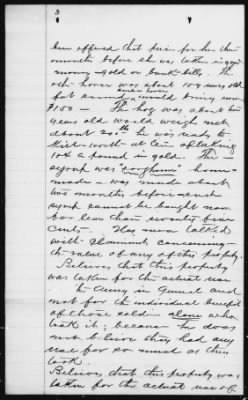 3
been offered that price for her this
months before she was taken in good
money - gold or bank-bills. The
other horse was about 10 years old
but sound and would bring now
$150 - The hog was about two
years old would weigh net
about 200 lbs he was ready to
kill - worth at
10¢ a pound in gold. The
syrup was sorghum home-
made - was made about
two months before such
syrup cannot be bought now
for less than seventy five
cents. Has never talked
with claimant concerning
the value of any of this property.
Believes that this property
was taken for the actual use
of the Army in General and
not for the individual benefit
of those soldiers alone who
took it; because he does
not believe they had any
use for so much as they
took.
Believes that this property was
taken for the actual use of